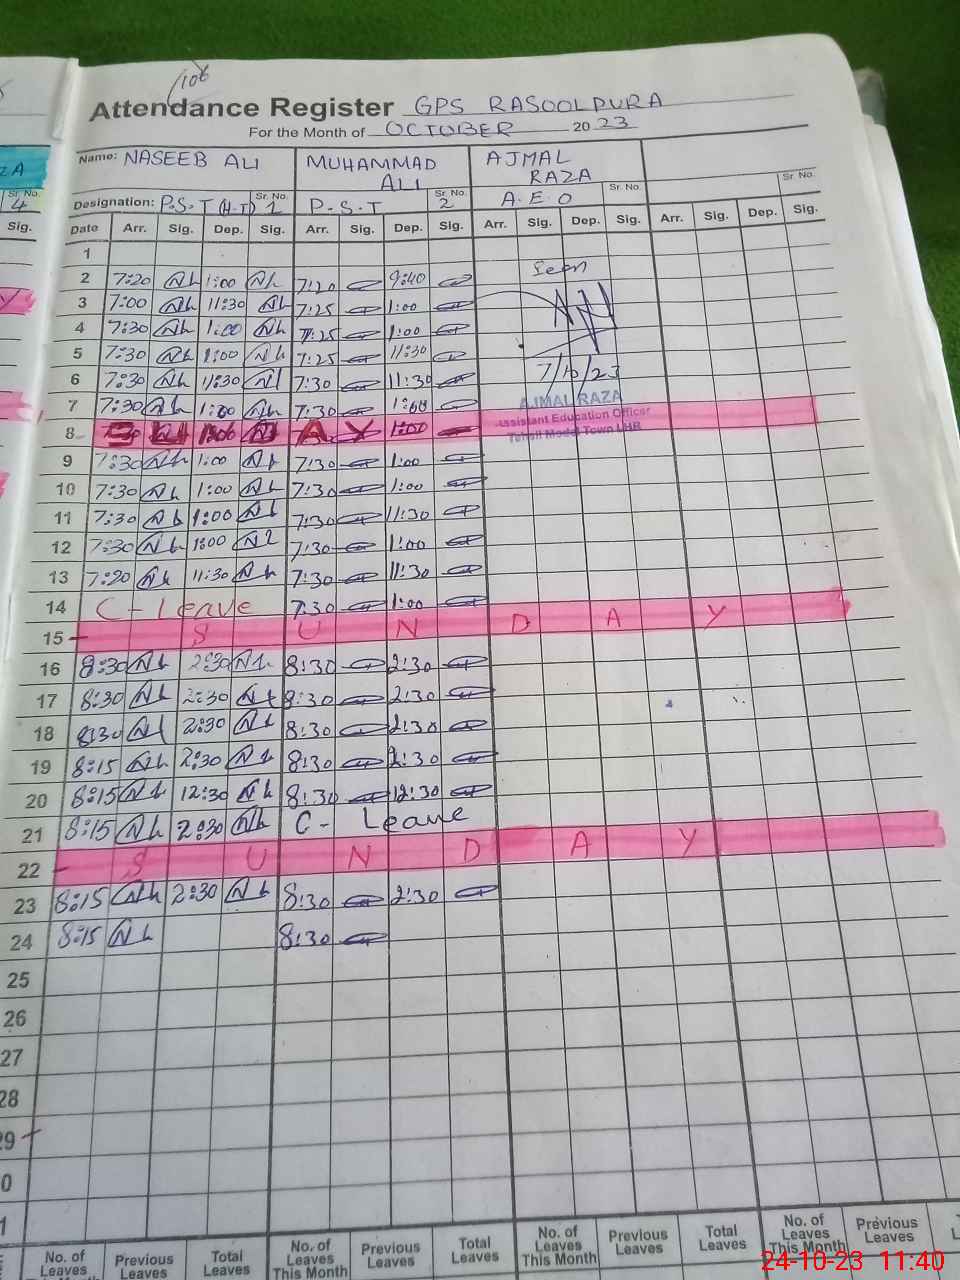 106
Attendance Register GPS RASOOLPURA
For the Month of OCTOBER 2023
Name: NASEEB ALI MUHAMMAD ALI AJMAL RAZA
Sr. No. Sr. No. Sr. No. Sr. No. Sr. No.
Designation: P.S.T (H.T) 1 P.S.T 2 A.E.O 4
Sig. Date Arr. Sig. Dep. Sig. Arr. Sig. Dep. Sig. Arr. Sig. Dep. Sig. Arr. Sig. Dep. Sig.
1
2 7:20 1:00 7:20 9:40 Seen
3 7:00 11:30 7:25 1:00
4 7:30 1:00 7:25 1:00
5 7:30 1:00 7:25 11:30
6 7:30 11:30 7:30 11:30 7/10/23
7 7:30 1:00 7:30 1:00 AJMAL RAZA
8 1:00 A Y 1:00 Assistant Education Officer
Tehsil Model Town LHR
9 7:30 1:00 7:30 1:00
10 7:30 1:00 7:30 1:00
11 7:30 1:00 7:30 11:30
12 7:30 1:00 7:30 1:00
13 7:20 11:30 7:30 11:30
14 C-Leave 7:30 1:00
15 S U N D A Y
16 8:30 2:30 8:30 2:30
17 8:30 2:30 8:30 2:30
18 8:30 2:30 8:30 2:30
19 8:15 2:30 8:30 2:30
20 8:15 12:30 8:30 12:30
21 8:15 2:30 C- Leave
22 S U N D A Y
23 8:15 2:30 8:30 2:30
24 8:15 8:30
25
26
27
28
29
0
1
No. of Leaves This Month Previous Leaves Total Leaves No. of Leaves This Month Previous Leaves Total Leaves No. of Leaves This Month Previous Leaves Total Leaves No. of Leaves This Month Previous Leaves
24-10-23 11:40